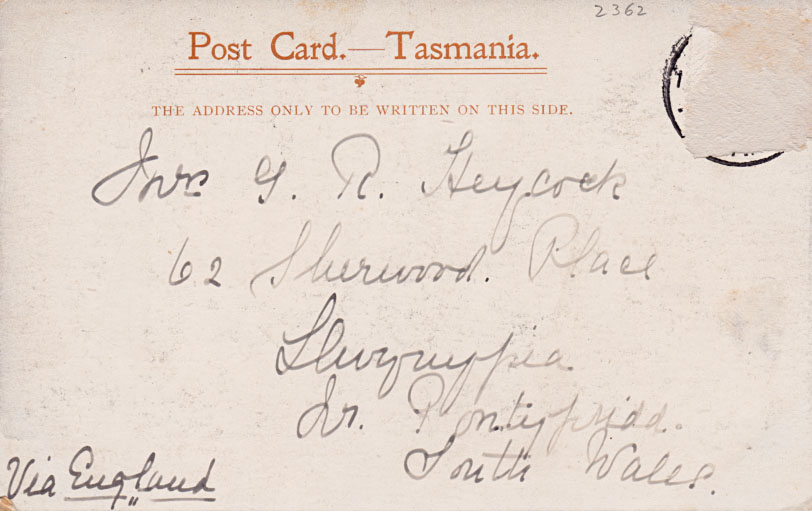 2362
Post Card.—Tasmania.
THE ADDRESS ONLY TO BE WRITTEN ON THIS SIDE.
Mrs G. R. Heycock
62 Sherwood. Place
Llwynypia
Nr. Pontypridd.
South Wales.
Via England